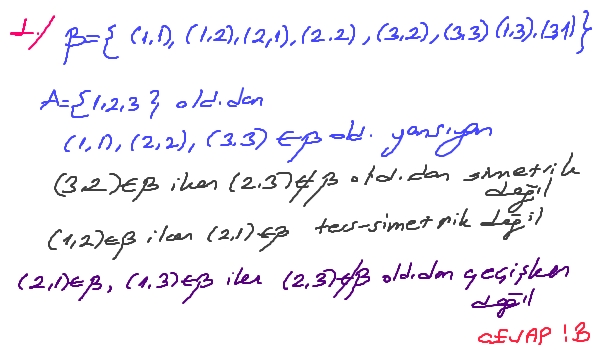 1./ β={ (1,1), (1,2), (2,1), (2.2), (3,2), (3,3) (1,3), (3,1)}
A={1,2,3} old.dan
(1,1), (2,2), (3,3) ∈ β old. yansıyan
(3,2)∈β iken (2,3)∉β old.dan simetrik değil
(1,2)∈β iken (2,1)∈β ters-simetrik değil
(2,1)∈β, (1,3)∈β iken (2,3)∉β old.dan geçişken değil
CEVAP : B